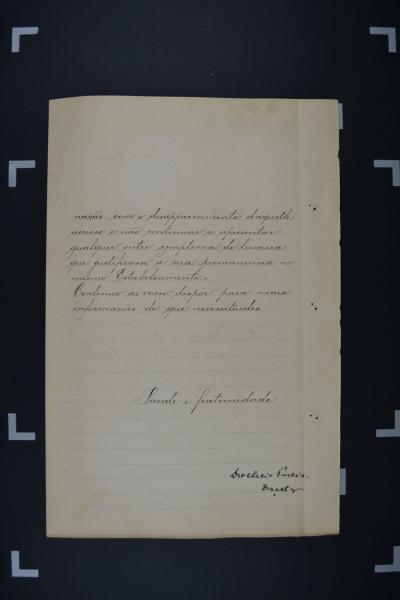 nação, com o desapparecimento d'aquelle
accesso e não continuar a apresentar
qualquer outro symptoma de loucura
que justificasse a sua permanencia no
mesmo Estabelecimento.
Continuo ao vosso dispôr para mais
informações de que necessitardes.
Saude e fraternidade